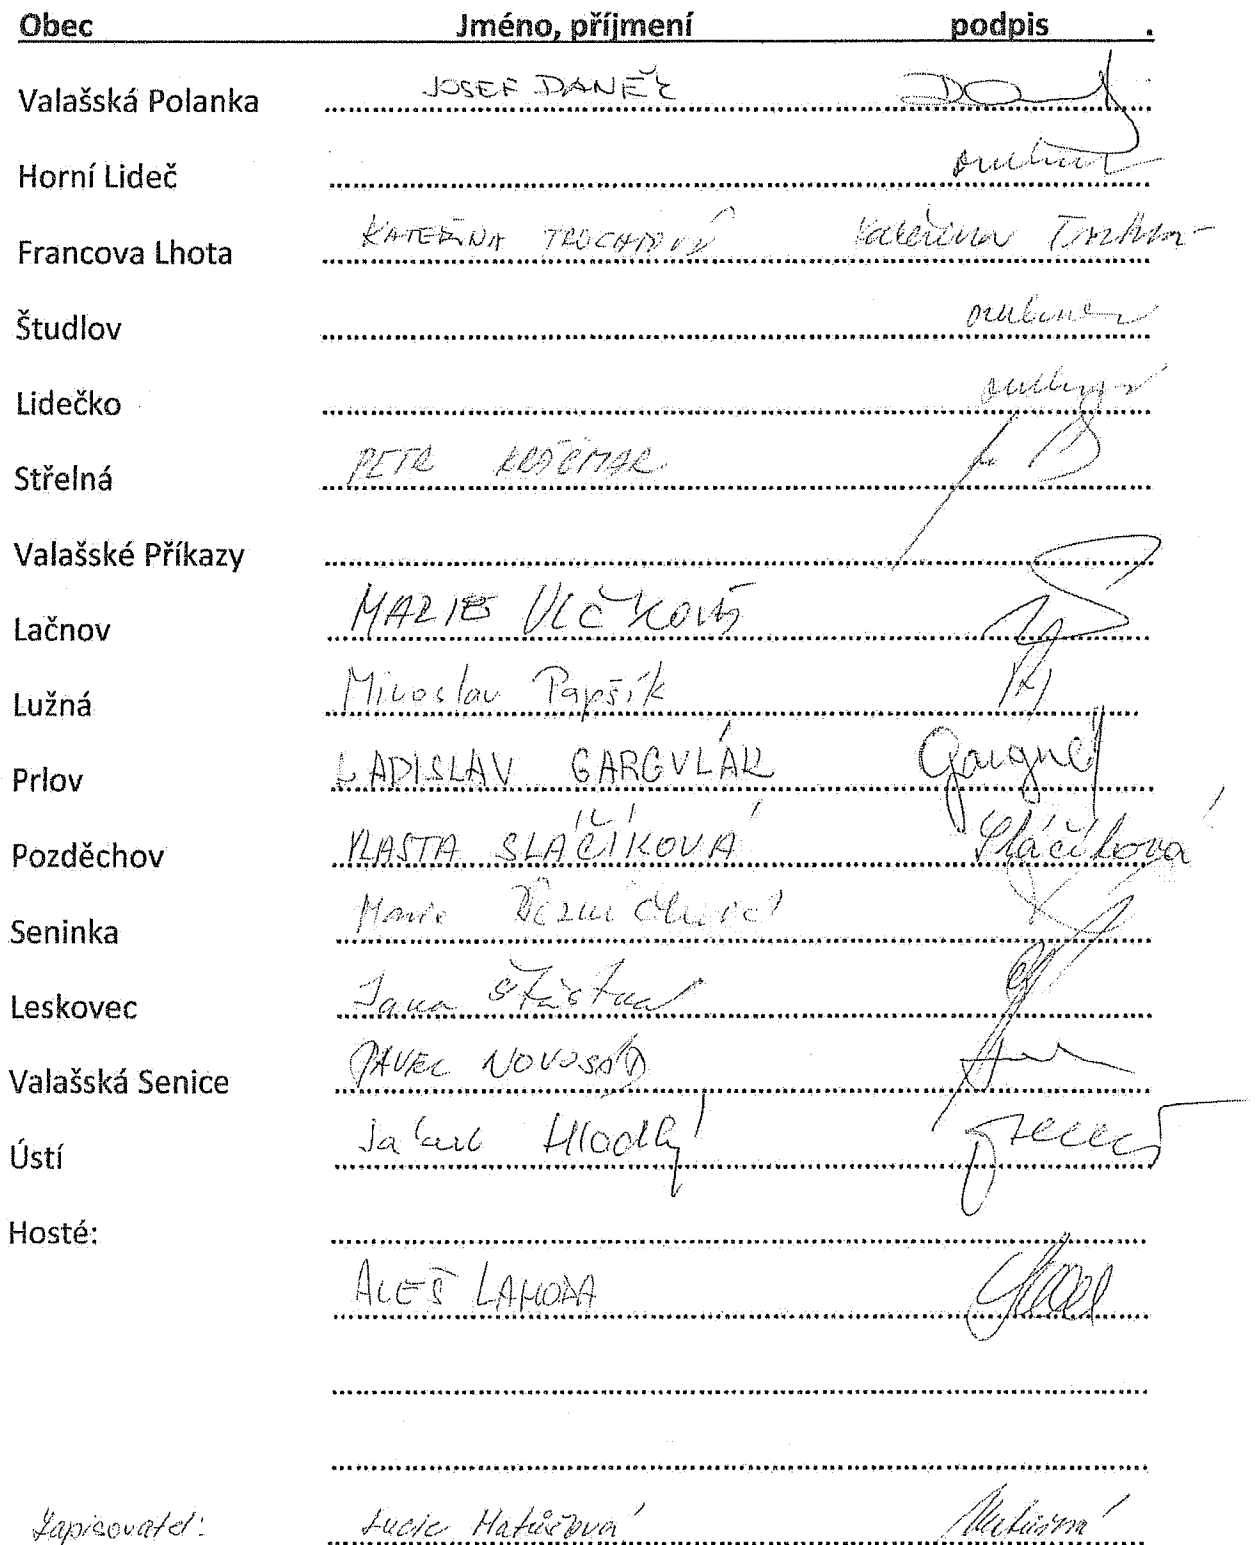 Obec Jméno, příjmení podpis .
Valašská Polanka JOSEF DANĚK
Horní Lideč omluven
Francova Lhota KATEŘINA TROCHTOVÁ Kateřina
Študlov omluven
Lidečko omluven
Střelná PETR KROČMAR
Valašské Příkazy
Lačnov MARIE VLČKOVÁ
Lužná Miroslav Papšík
Prlov LADISLAV GARGULÁK
Pozděchov VLASTA SLÁČÍKOVÁ Sláčíková
Seninka Marie Řezníčková
Leskovec Jana Šťastná
Valašská Senice PAVEL NOVOSÁD
Ústí Jakub Hladký
Hosté:
ALEŠ LAHODA
Zapisovatel: Lucie Matůšová Matůšová